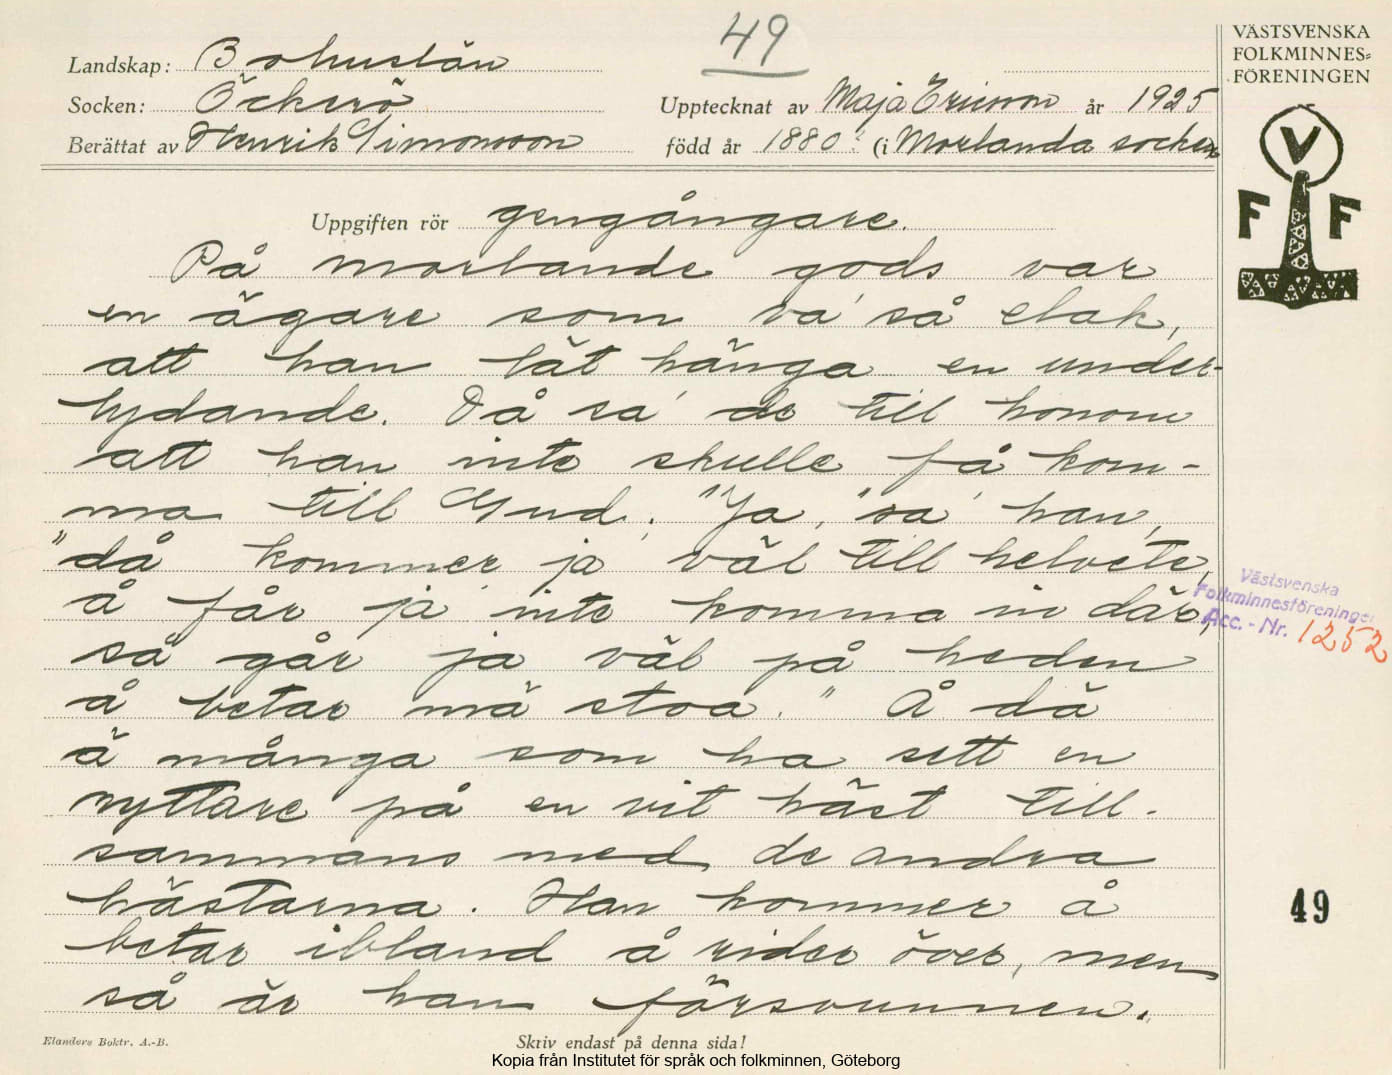 49
Landskap: Bohuslän
Socken: Öckerö
Upptecknat av Maja Ericson år 1925
Berättat av Henrik Simonsson
född år 1880? (i Morlanda socken
Uppgiften rör gengångare.
På morlande gods var
en ägare som va' så elak,
att han lät hänga en under-
lydande. Då sa' de till honom
att han inte skulle få kom-
ma till Gud. "Ja," sa' han,
"då kommer ja' väl till helvete,
å får ja' inte komma in där,
så går ja väl på heden
å betar mä stoa." Å dä
ä många som ha sett en
ryttare på en vit häst till-
sammans med de andra
hästarna. Han kommer å
betar ibland å rider över, men
så är han försvunnen.
Elanders Boktr. A.-B.
Skriv endast på denna sida!
Kopia från Institutet för språk och folkminnen, Göteborg
VÄSTSVENSKA
FOLKMINNES=
FÖRENINGEN
V
F F
Västsvenska
Folkminnesföreningen
Acc. - Nr. 1252
49